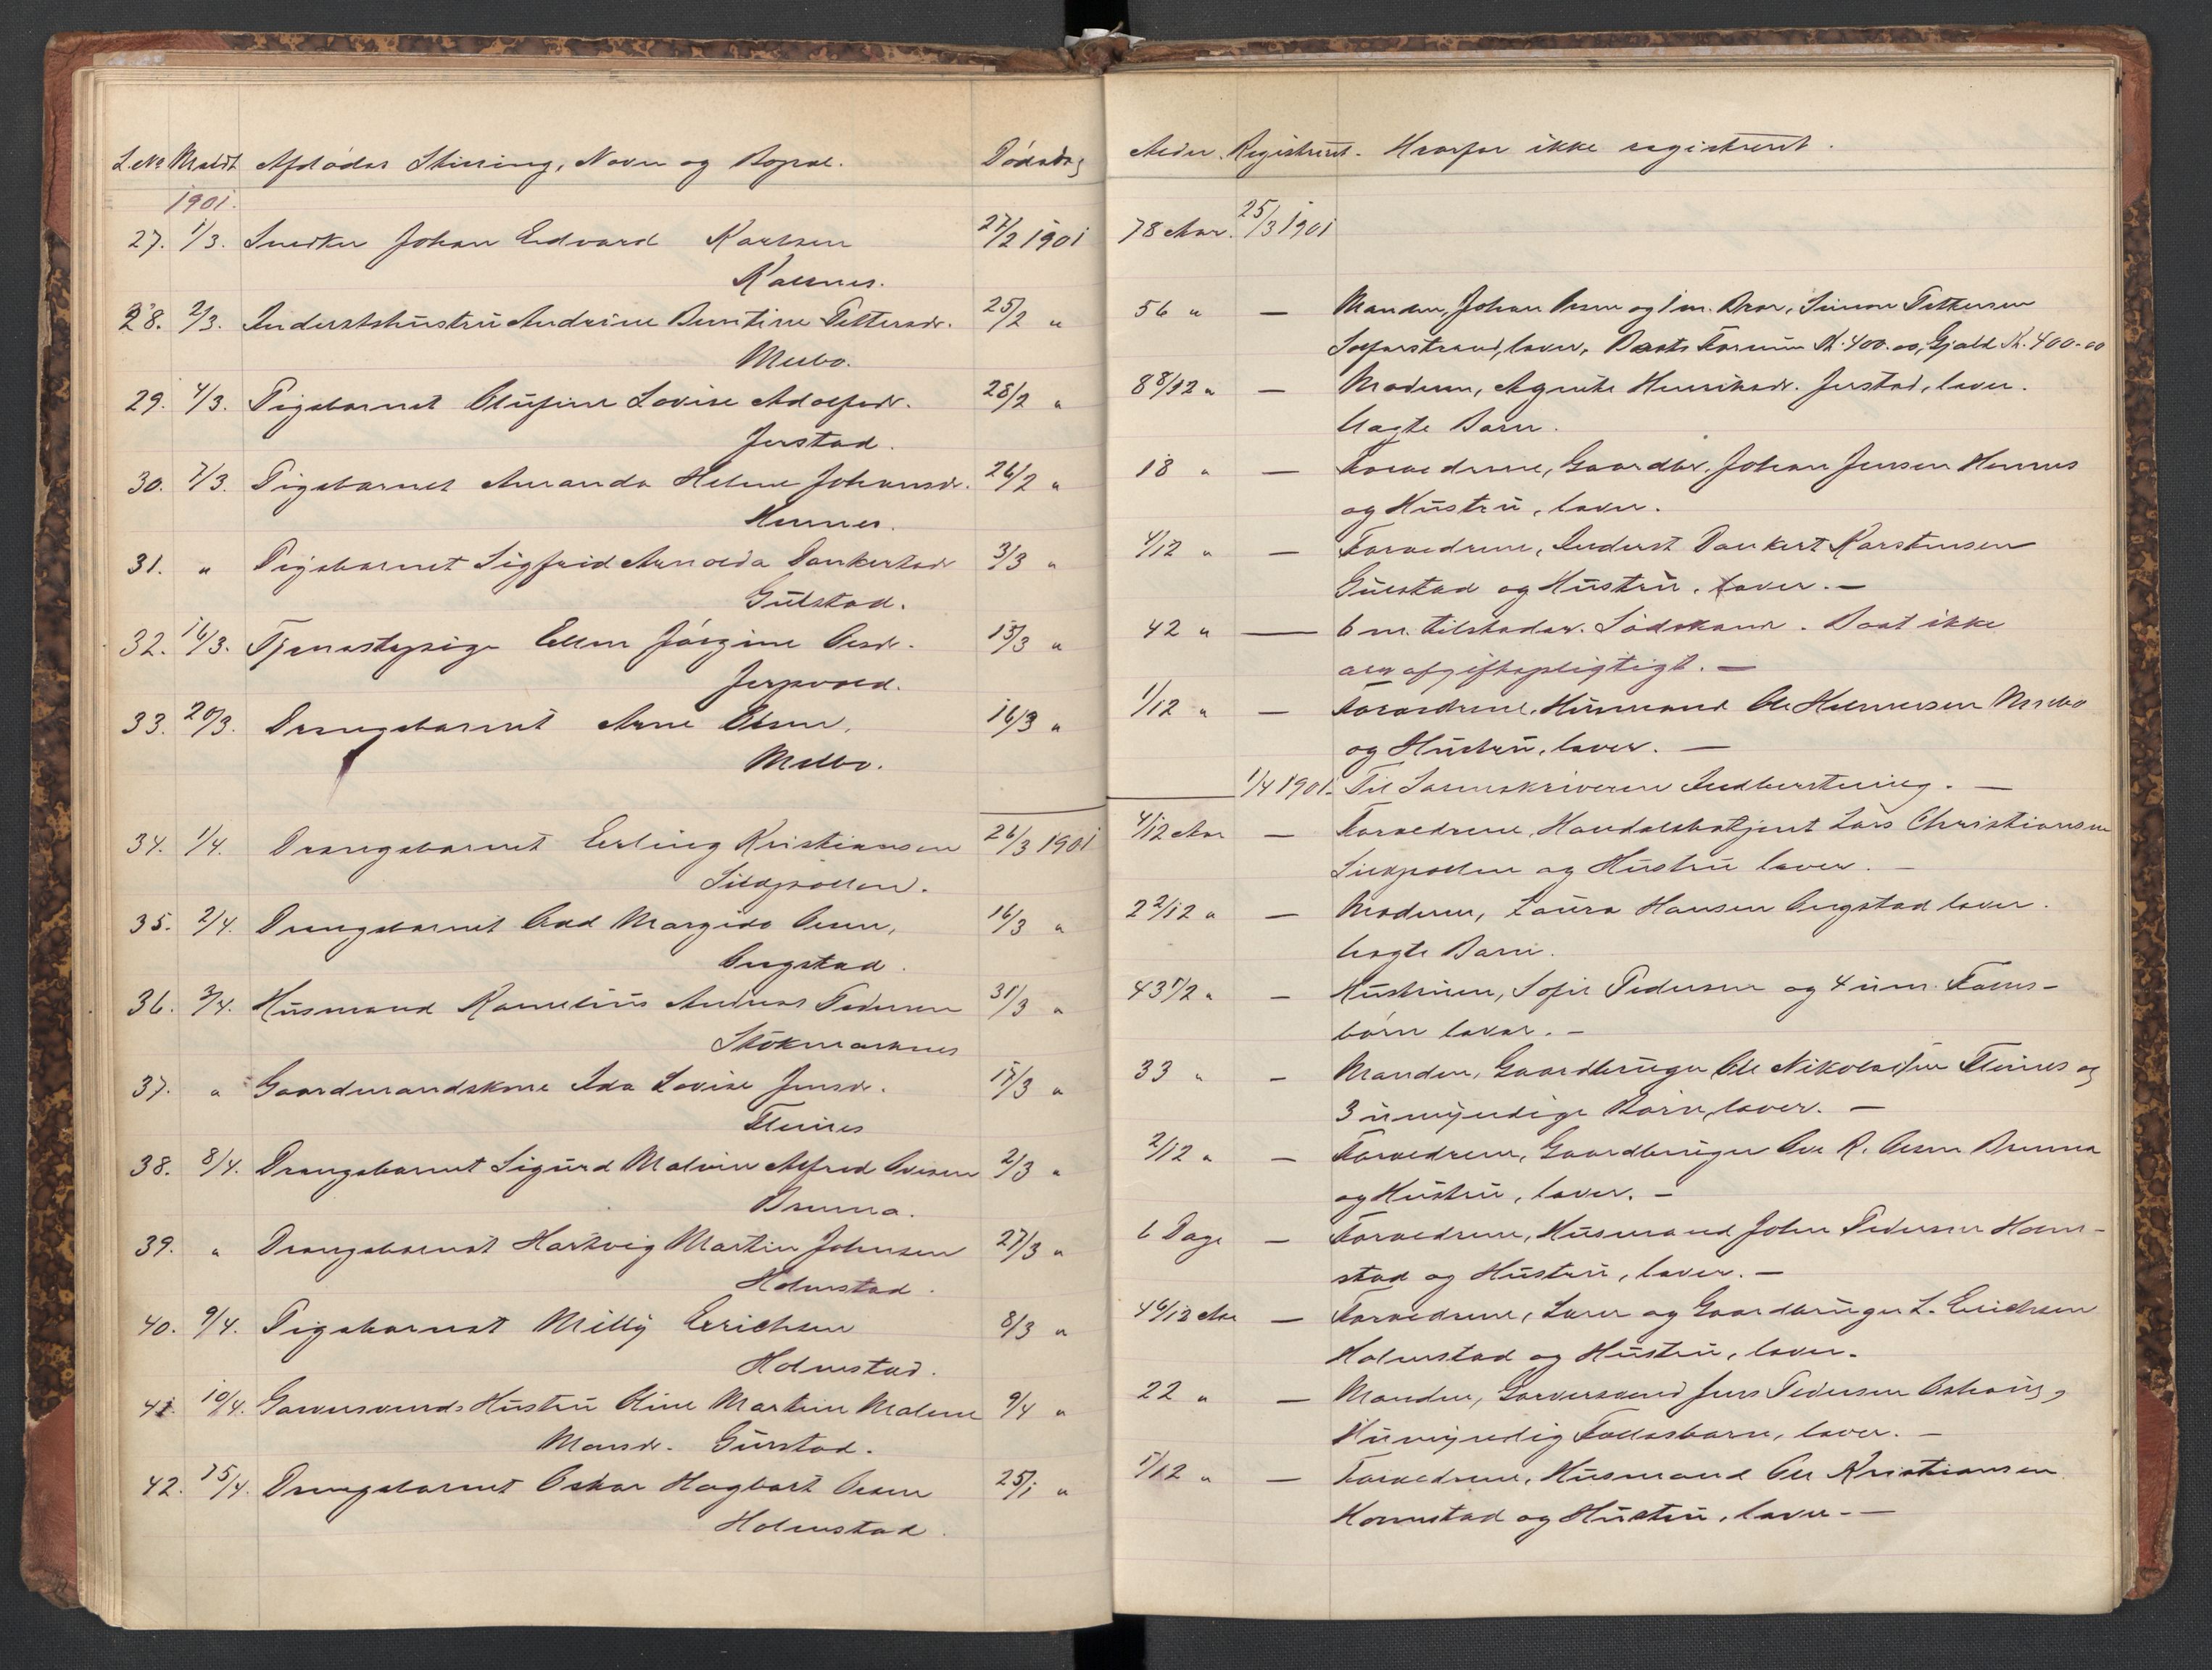 L.No Meldt Afdødes Stilling, Navn og Bopæl. Dødsdag
1901.
27. 1/3. Snedker Johan Edvard Karlsen 27/2 1901
Kalsnes.
28. 2/3. Inderstshustru Andrine Berntine Pettersdr. 25/2 "
Melbo.
29. 4/3. Pigebarnet Olufine Lovise Adolfsdr. 28/2 "
Jerstad.
30. 7/3. Pigebarnet Amanda Helene Johansdr. 26/2 "
Hennes.
31. " Pigebarnet Sigfrid Arnolda Dankertsdr 3/3 "
Gulstad.
32. 16/3. Tjenestepige Ellen Jørgine Olsdr. 15/3 "
Jerpvold.
33. 20/3. Drengebarnet Arne Olsen, 16/3 "
Melbo.
34. 1/4. Drengebarnet Erling Kristiansen 26/3 1901
Sildpollen.
35. 2/4. Drengebarnet Odd Margido Olsen, 16/3 "
Ongstad.
36. 3/4. Husmand Kornelius Andreas Pedersen 31/3 "
Stokmarknes
37. " Gaardmandskone Ida Lovise Jensdr. 17/3 "
Fleines
38. 8/4. Drengebarnet Sigurd Malvin Alfred Olesen 2/3 "
Bremna.
39. " Drengebarnet Hartvig Martin Johnsen 27/3 "
Holmstad.
40. 9/4. Pigebarnet Milly Erichsen 8/3 "
Holmstad.
41. 10/4. Garversvends Hustru Oline Martine Malene 9/4 "
Monsdr. Gulstad.
42. 15/4. Drengebarnet Oskar Hagbart Olsen 25/1 "
Holmstad.
Alder. Registreret. Hvorfor ikke registreret.
78 Aar. 25/3 1901
56 " — Manden, Johan Olsen og 1 m. Bror, Simon Pettersen
lever, Boets Formue Kr. 400.00, Gjæld Kr. 400.00
8 8/12 " — Moderen, Agnete Henriksdr. Jerstad, lever.
Uægte Barn.
18 " — Forældrene, Gaardbr. Johan Jensen Hennes
og Hustru, lever.
4/12 " — Forældrene, Inderst Dankert Karstensen
Gulstad og Hustru, lever. —
42 " — 6 m. Sødskend. Boet ikke
afgiftspligtigt. —
1/12 " — Forældrene, Husmand Ole Helmersen Melbo
og Hustru, lever. —
1/4 1901. Til Sorenskriveren Indberetning. —
4/12 Aar — Forældrene, Handelsbetjent Lars Christiansen
Sildpollen og Hustru lever. —
2 2/12 " — Moderen, Laura Hansen Ongstad lever.
Uægte Barn.
43 1/2 " — Hustruen, Sofie Pedersen og 4 um. Fælles-
børn lever. —
33 " — Manden, Gaardbruger Ole Nikolaisen Fleines og
3 umyndige Børn, lever. —
2/12 " — Forældrene, Gaardbruger Ole R. Olsen Bremna
og Hustru, lever. —
6 Dage — Forældrene, Husmand John Pedersen Holm-
stad og Hustru, lever. —
4 6/12 Aar — Forældrene, Lærer og Gaardbruger L. Erichsen
Holmstad og Hustru, lever.
22 " — Manden, Garversvend Jens Pedersen
1 umyndig Fællesbarn, lever. —
1/12 " — Forældrene, Husmand Ole Kristiansen
Holmstad og Hustru, lever. —